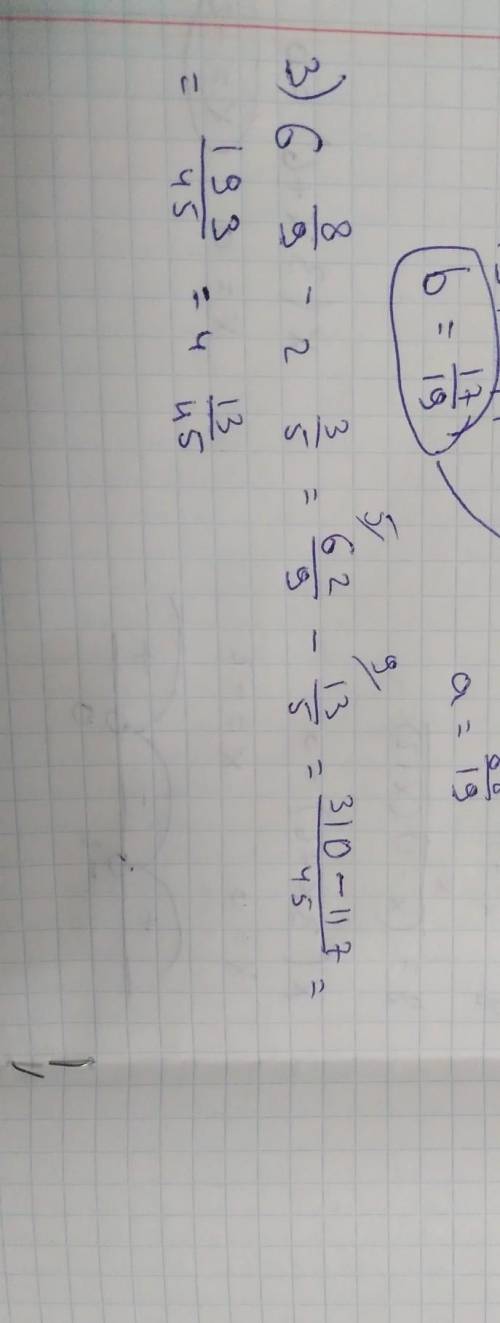 b = 17/19
a = /19
3) 6 8/9 - 2 3/5 = 62/9 - 13/5 = 310-117/45 =
= 193/45 = 4 13/45